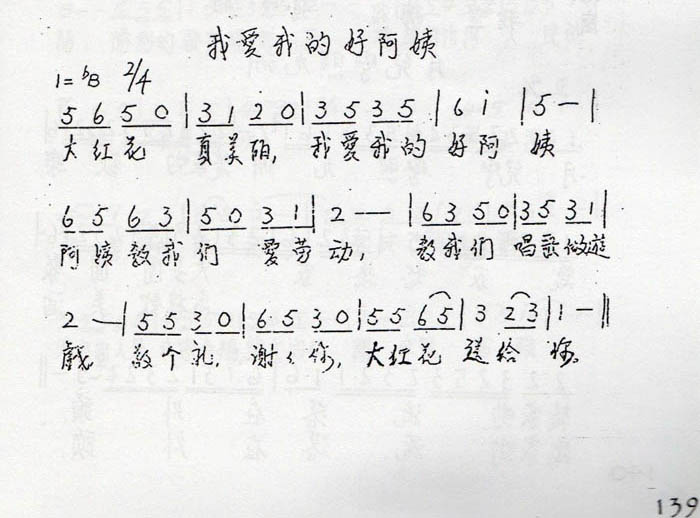 我愛我的好阿姨
1=ᵇB 2/4
5 6 5 0 | 3 1 2 0 | 3 5 3 5 | 6 i | 5 — |
大红花 真美丽, 我愛我的 好阿 姨
6 5 6 3 | 5 0 3 1 | 2 — | 6 3 5 0 | 3 5 3 1 |
阿姨教我们 愛劳动, 教我们 唱歌做遊
2 — | 5 5 3 0 | 6 5 3 0 | 5 5 6 5 | 3 2 3 | 1 — ‖
戲。 敬个礼, 谢々你, 大红花 送给 你。
139